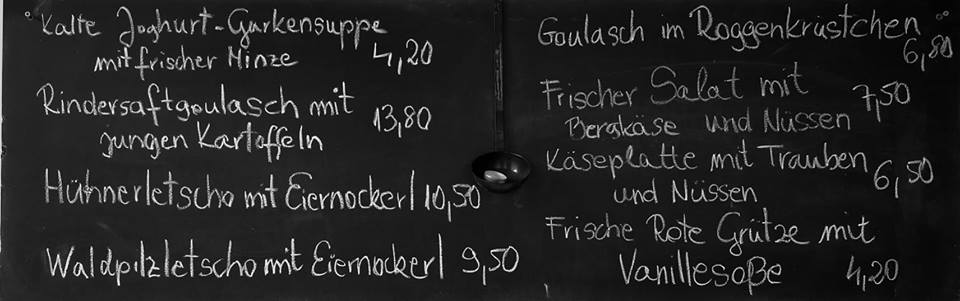 Kalte Joghurt-Gurkensuppe
mit frischer Minze 4,20
Rindersaftgoulasch mit
jungen Kartoffeln 13,80
Hühnerletscho mit Eiernockerl 10,50
Waldpilzletscho mit Eiernockerl 9,50
Goulasch im Roggenkrüstchen
6,80
Frischer Salat mit
Bergkäse und Nüssen 7,50
Käseplatte mit Trauben
und Nüssen 6,50
Frische Rote Grütze mit
Vanillesoße 4,20